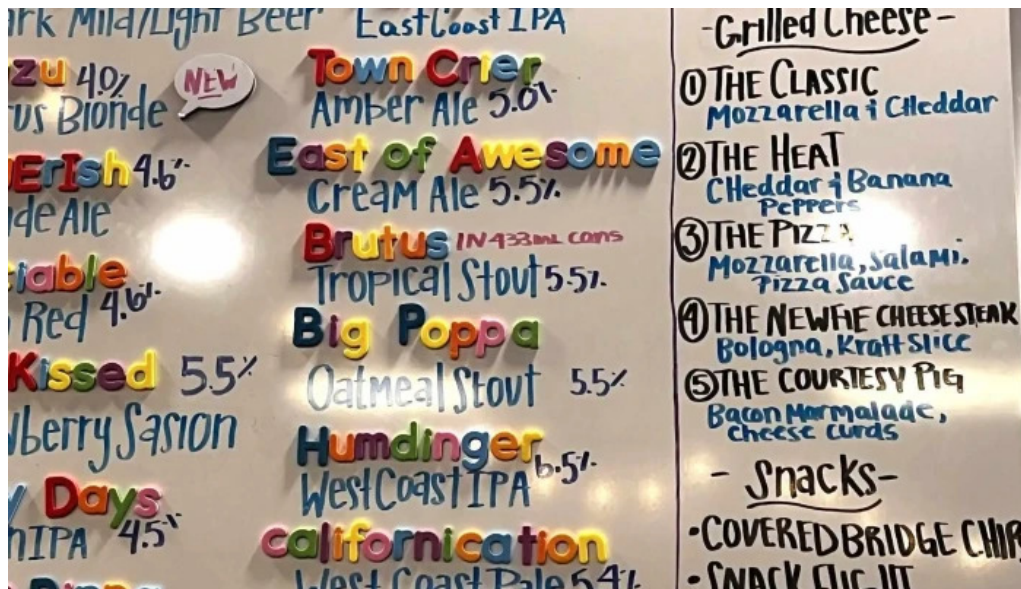 ark Mild/Light Beer
zu 4.0%
NEW
us Blonde
Erish 4.6%
de Ale
iable
Red 4.6%
Kissed 5.5%
berry Sasion
Days
IPA 4.5%
East Coast IPA
Town Crier
Amber Ale 5.0%
East of Awesome
Cream Ale 5.5%
Brutus IN 433ml cans
Tropical Stout 5.5%
Big Poppa
Oatmeal Stout 5.5%
Humdinger
West Coast IPA 6.5%
californication
West Coast Pale 5.4%
-Grilled Cheese-
① THE CLASSIC
Mozzarella & CHeddar
② THE HEAT
CHeddar & Banana
Peppers
③ THE PIZZA
Mozzarella, Salami,
Pizza Sauce
④ THE NEWFIE CHEESESTEAK
Bologna, Kraft Slice
⑤ THE COURTESY PIG
Bacon Marmalade,
cheese curds
- Snacks-
• COVERED BRIDGE CHIP
• SNACK